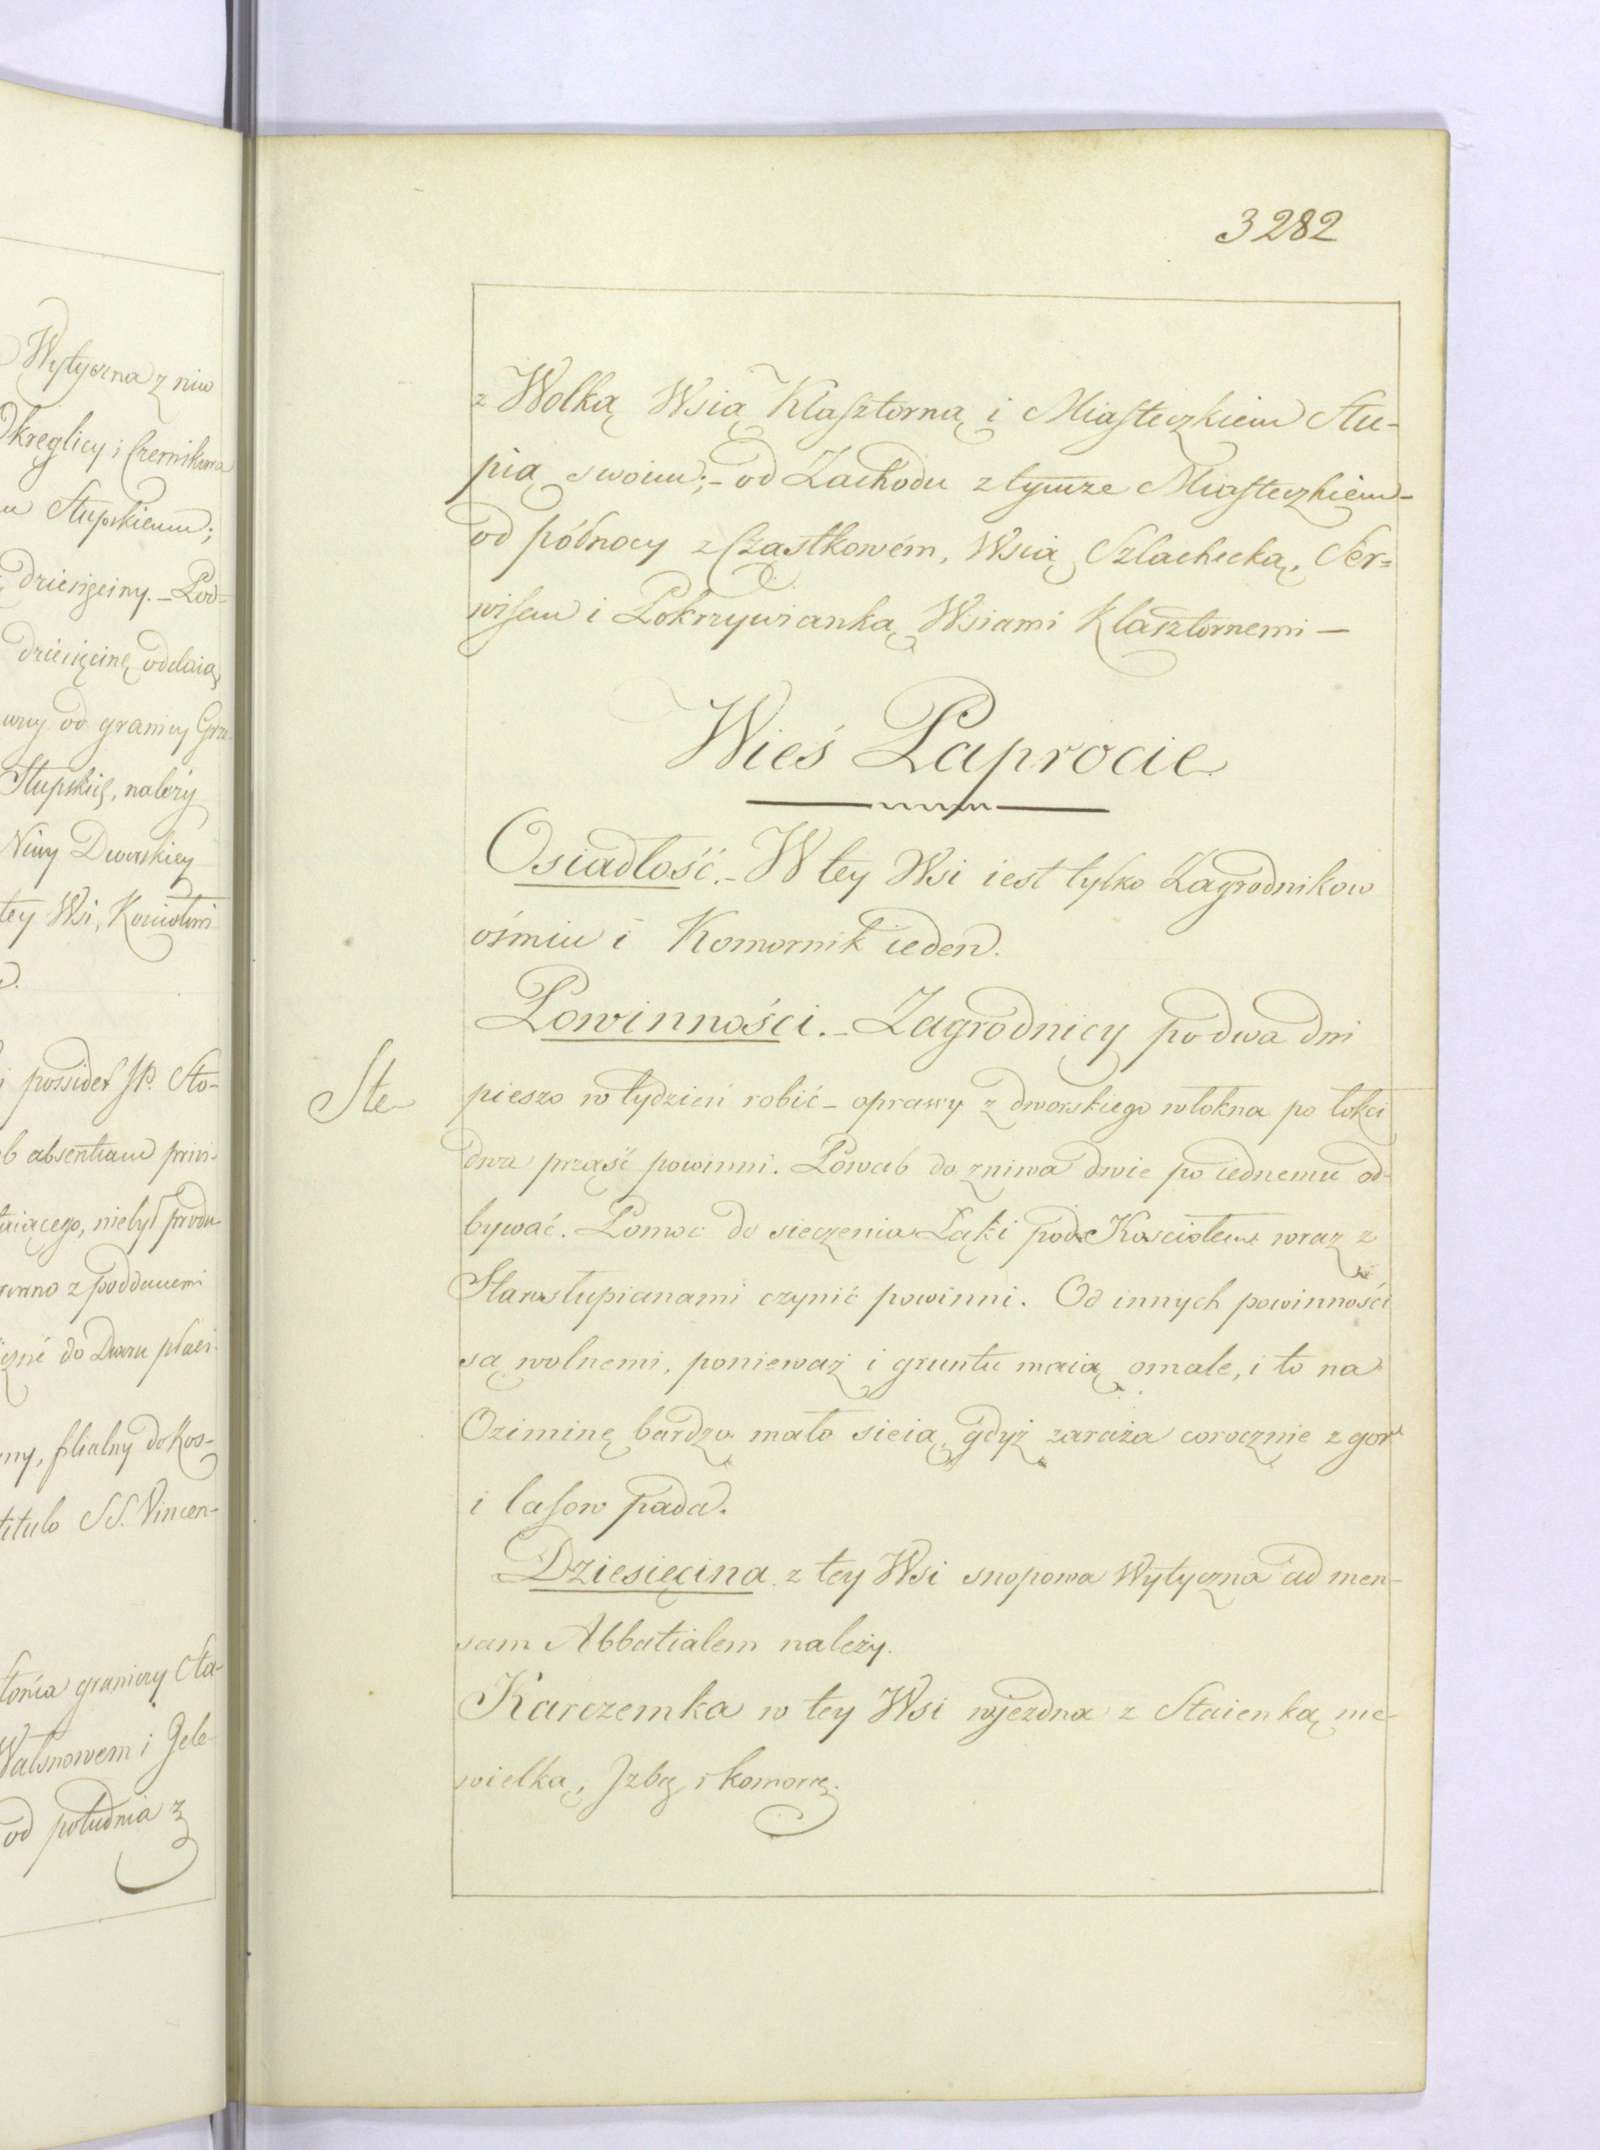 Wytyczna z niw
Okreglicy i Czernikowa
Słupskiemu;
dziesięciny. – Pod-
dziesięcinę oddaią,
od granicy
Słupskiey, należy
Niwy Dworskiey
tey Wsi,
possidet JP. Sto-
absentiam prin-
niebył produ-
z poddanemi
do Dworu płaci
filialny do Kos-
titulo SS. Vincen-
granicy Sta-
i Jele-
od południa z
3282
z Wolką Wsią Klasztorną i Miasteczkiem Słu-
pią swoim; – od Zachodu z tymze Miasteczkiem –
od północy z Cząstkowém, Wsią Szlachecką, Ser-
wisem i Pokrzywianką Wsiami Klasztornemi –
Wieś Paprocie
Osiadłość. – W tey Wsi iest tylko Zagrodnikow
ośmiu i Komornik ieden.
Powinności. – Zagrodnicy po dwa dni
Ste
pieszo w tydzień robić – oprawy z dworskiego włokna po łokci
dwa prząść powinni. Powab do zniwa dwie po iednemu od-
bywać. Pomoc do sieczenia Łąki pod Kosciołem wraz z
Starosłupianami czynić powinni. Od innych powinności
są wolnemi, ponieważ i gruntu maią omale, i to na
Oziminę bardzo mało sieią, gdyż zaraża corocznie z gor
i lasow pada.
Dziesięcina z tey Wsi snopowa Wytyczna ad men-
sam Abbatialem należy.
Karczemka w tey Wsi wjezdna z Staienką nie-
wielką, Jzbą i komorą.